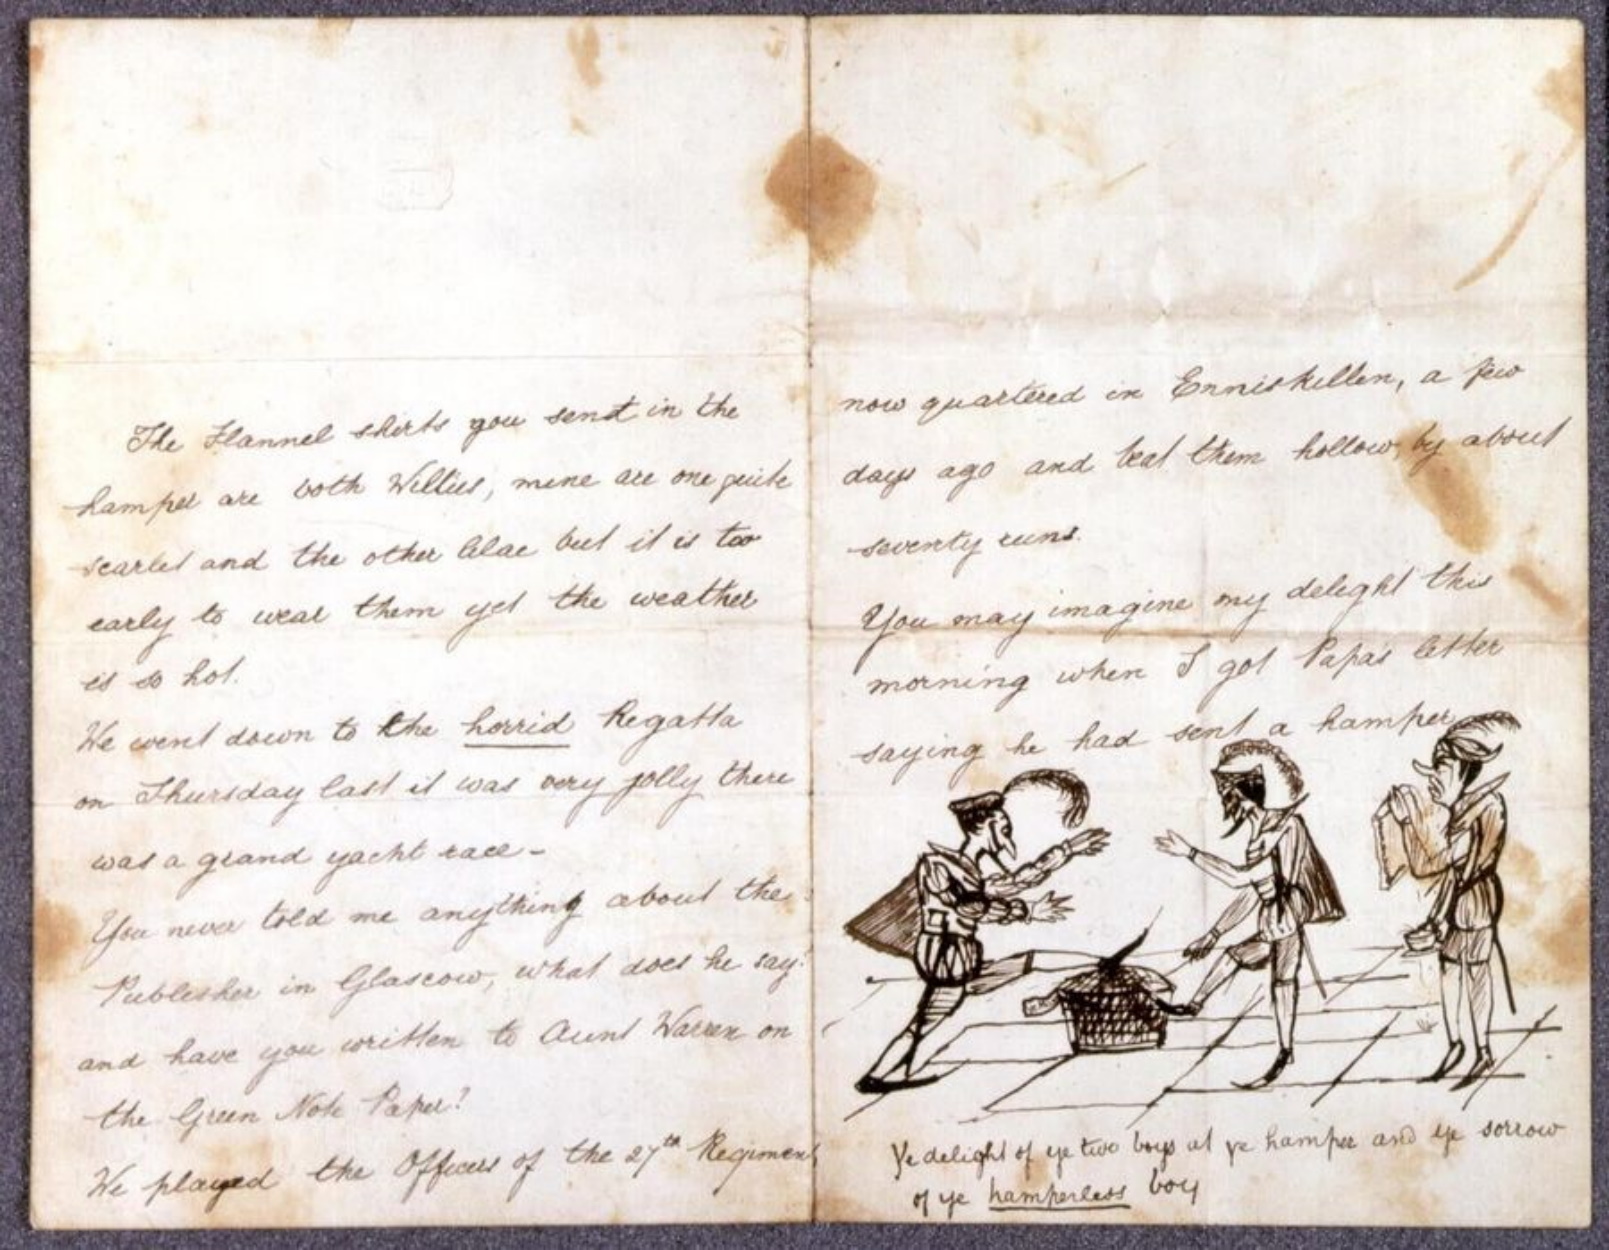 The Flannel shirts you sent in the
hamper are both Willies, mine are one quite
scarlet and the other lilac but it is too
early to wear them yet the weather
is so hot.
We went down to the horrid Regatta
on Thursday last it was very jolly there
was a grand yacht race -
You never told me anything about the
Publisher in Glascow, what does he say?
and have you written to Aunt Warren on
the Green Note Paper?
We played the Officers of the 27th Regiment
now quartered in Enniskillen, a few
days ago and beat them hollow, by about
seventy runs.
You may imagine my delight this
morning when I got Papa's letter
saying he had sent a hamper
Ye delight of ye two boys at ye hamper and ye sorrow
of ye hamperless boy